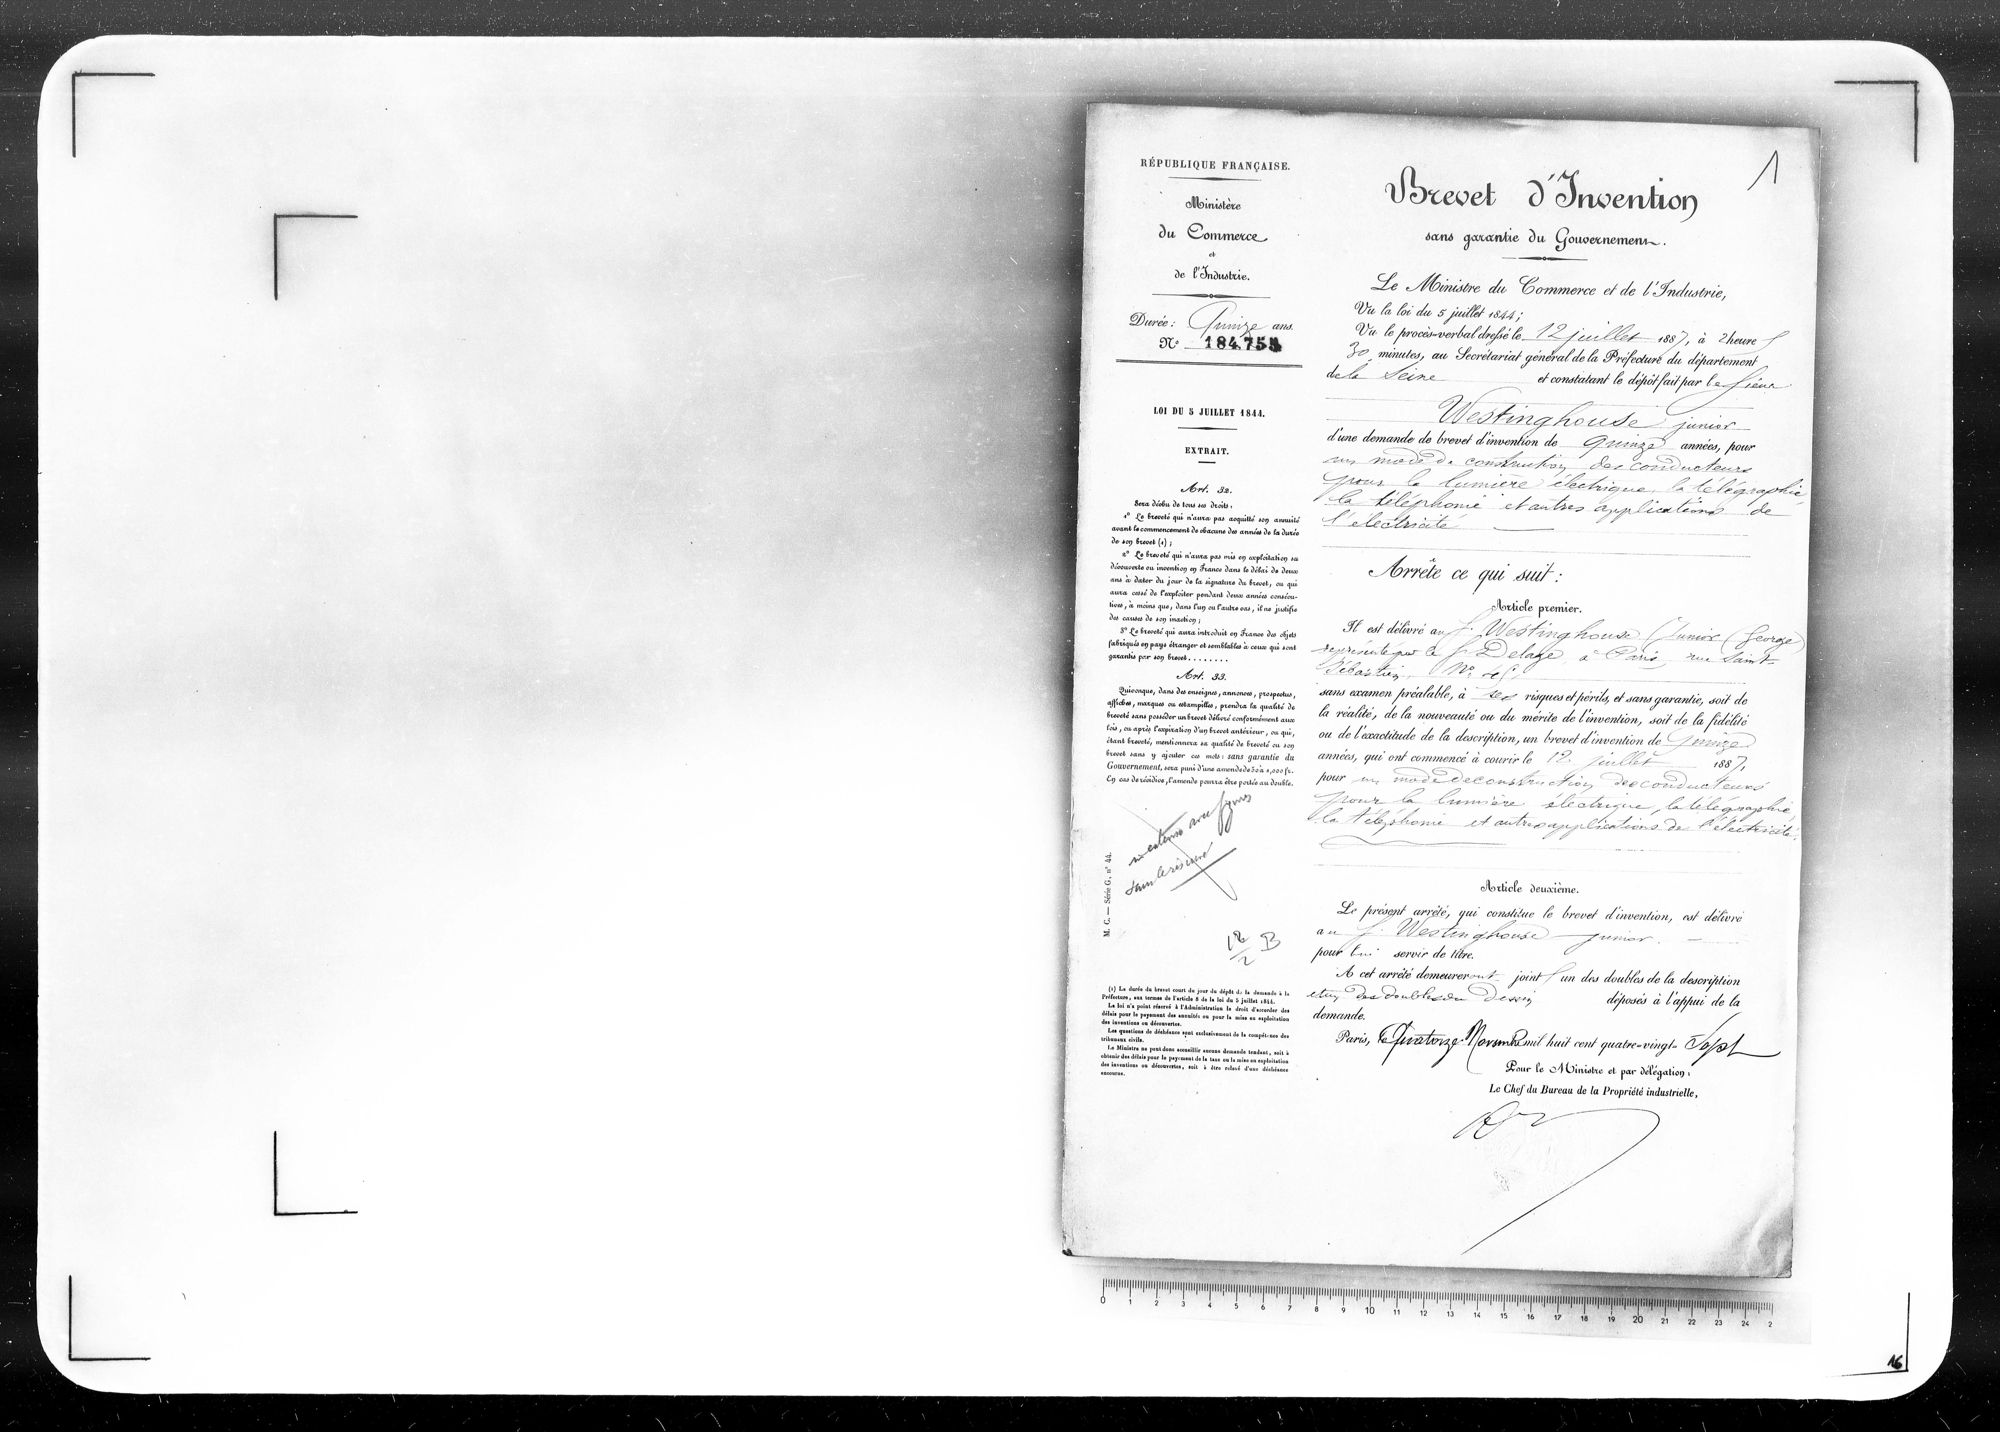 RÉPUBLIQUE FRANÇAISE.
Ministère
du Commerce
et
de l'Industrie.
Durée : Quinze ans.
N° 184.754
LOI DU 5 JUILLET 1844.
EXTRAIT.
Art. 32.
Sera déchu de tous ses droits :
1° Le breveté qui n'aura pas acquitté son annuité
avant le commencement de chacune des années de la durée
de son brevet (1) ;
2° Le breveté qui n'aura pas mis en exploitation sa
découverte ou invention en France dans le délai de deux
ans à dater du jour de la signature du brevet, ou qui
aura cessé de l'exploiter pendant deux années consécu-
tives, à moins que, dans l'un ou l'autre cas, il ne justifie
des causes de son inaction ;
3° Le breveté qui aura introduit en France des objets
fabriqués en pays étranger et semblables à ceux qui sont
garantis par son brevet . . . . . . . .
Art. 33.
Quiconque, dans des enseignes, annonces, prospectus,
affiches, marques ou estampilles, prendra la qualité de
breveté sans posséder un brevet délivré conformément aux
lois, ou après l'expiration d'un brevet antérieur, ou qui,
étant breveté, mentionnera sa qualité de breveté ou son
brevet sans y ajouter ces mots : sans garantie du
Gouvernement, sera puni d'une amende de 50 à 1,000 fr.
En cas de récidive, l'amende pourra être portée au double.
in extenso avec figures
M. C. — Série G, n° 44.
12/2 B
(1) La durée du brevet court du jour du dépôt de la demande à la
Préfecture, aux termes de l'article 8 de la loi du 5 juillet 1844.
La loi n'a point réservé à l'Administration le droit d'accorder des
délais pour le payement des annuités ou pour la mise en exploitation
des inventions ou découvertes.
Les questions de déchéance sont exclusivement de la compétence des
tribunaux civils.
Le Ministre ne peut donc accueillir aucune demande tendant, soit à
obtenir des délais pour le payement de la taxe ou la mise en exploitation
des inventions ou découvertes, soit à être relevé d'une déchéance
encourue.
1
Brevet d'Invention
sans garantie du Gouvernement.
Le Ministre du Commerce et de l'Industrie,
Vu la loi du 5 juillet 1844 ;
Vu le procès-verbal dressé le 12 juillet 1887, à 2 heures
30 minutes, au Secrétariat général de la Préfecture du département
de la Seine et constatant le dépôt fait par le Sieur
Westinghouse junior
d'une demande de brevet d'invention de quinze années, pour
un mode de construction des conducteurs
pour la lumière électrique, la télégraphie,
la téléphonie et autres applications de
l'électricité
Arrête ce qui suit :
Article premier.
Il est délivré au S. Westinghouse (Junior (George)
représenté par le S. Delage, à Paris, rue Saint-
Sébastien, N°
sans examen préalable, à ses risques et périls, et sans garantie, soit de
la réalité, de la nouveauté ou du mérite de l'invention, soit de la fidélité
ou de l'exactitude de la description, un brevet d'invention de quinze
années, qui ont commencé à courir le 12 juillet 1887,
pour un mode de construction des conducteurs
pour la lumière électrique, la télégraphie,
la téléphonie et autres applications de l'électricité.
Article deuxième.
Le présent arrêté, qui constitue le brevet d'invention, est délivré
au S. Westinghouse junior.
pour lui servir de titre.
A cet arrêté demeureront joints un des doubles de la description
et un des doubles du dessin déposés à l'appui de la
demande.
Paris, le Quatorze Novembre mil huit cent quatre-vingt- Sept
Pour le Ministre et par délégation :
Le Chef du Bureau de la Propriété industrielle,
0 1 2 3 4 5 6 7 8 9 10 11 12 13 14 15 16 17 18 19 20 21 22 23 24 2
16